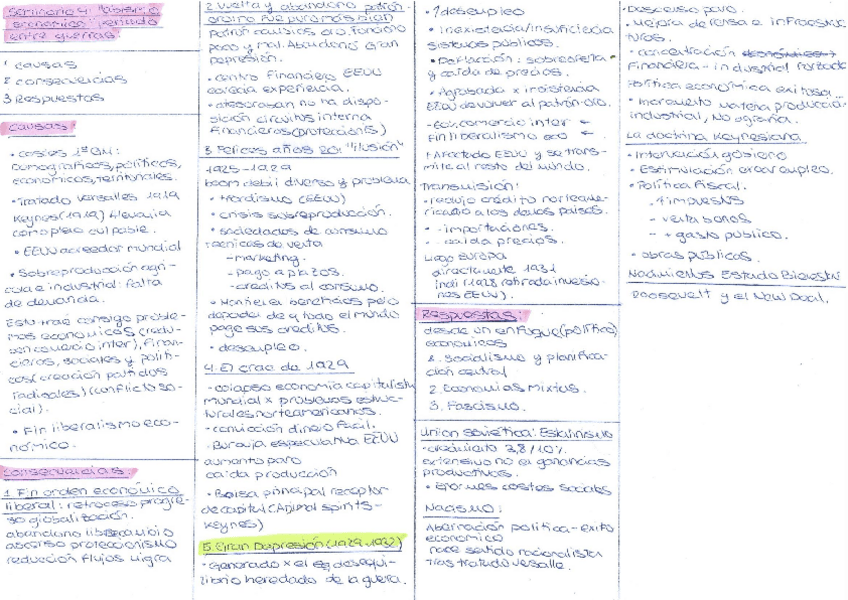 Seminario 4: Abismo
económico periodo
entre guerras.
1 causas
2 consecuencias
3 Respuestas
Causas:
• costes 1ªGM:
demográficos, políticos,
económicos, territoriales.
• Tratado Versalles 1919
Keynes (1919) Alemania
como culpable.
• EEUU acreedor mundial
• Sobreproducción agrí-
cola e industrial: falta
de demanda.
Esto trae consigo proble-
mas económicos (redu-
comercio inter), finan-
cieros, sociales y políti-
cos (creación partidos
radicales) (conflicto so-
cial).
• Fin liberalismo eco-
nómico.
Consecuencias
1. Fin orden económico
liberal: retroceso
globalización.
abandono librecambio
ascenso proteccionismo
reducción flujos migra
2 Vuelta y abandono patrón
oro
Patrón oro funcionó
poco y mal. Abandono Gran
Depresión.
• centro financiero EEUU
carecía experiencia.
• atesoraban no ha dispo-
sición circuitos interna
financieros (proteccionis)
3. Felices años 20: "ilusión"
1925-1929
boom débil diverso y problema
• fordismo (EEUU)
• crisis subreproducción.
• sociedades de consumo
técnicas de venta
- marketing.
- pago a plazos.
- créditos al consumo.
• Mantiene beneficios pero
depender de q todo el mundo
pague sus créditos.
• desempleo.
4. El crac de 1929
- colapso economía capitalista
mundial x problemas estruc-
turales norteamericanos.
- dinero fácil.
- Burbuja especulativa EEUU
aumento paro
caída producción
• Bolsa principal receptor
de capital (Animal spirits-
Keynes)
5. Gran Depresión (1929-1932)
• Generado x el desequi-
librio heredado de la guerra.
• ↑ desempleo
• Inexistencia/insuficiencia
sistemas públicos.
• Deflación: sobreoferta
y caída de precios.
• Agravada x insistencia
EEUU devolver al patrón oro.
comercio inter ←
fin liberalismo eco ←
Afectado EEUU y se trans-
mite al resto del mundo.
Transmisión:
• redujo crédito norteame-
ricano a los demás países.
- - importaciones.
- caída precios.
Llegó Europa
directamente 1931
indi (1928 retirada inversio-
nes EEUU).
Respuestas:
desde un enfoque (político)
económicos
1. Socialismo y planifica-
ción central
2. Economías Mixtas.
3. Fascismo.
Unión soviética: Estalinismo
• crecimiento 3,8/10%
extensivo no ganancias
productivas.
• Enormes costes sociales
Nazismo:
Aberración política-éxito
económico
nace sentido nacionalista
tras tratado Versalle.
• Descenso paro.
• Mejora defensa e infraestruc
turas.
• concentración
financiera-industrial forzada
Política económica exitosa
• Incremento materia producción
industrial, No agraria.
La doctrina Keynesiana
• Intervención gobierno
• Estimulación crear empleo.
• Política fiscal.
- ↑ impuestos
- venta bonos
- + gasto público.
• obras públicas.
Nacimientos Estado Bienestar
Roosevelt y el New Deal.